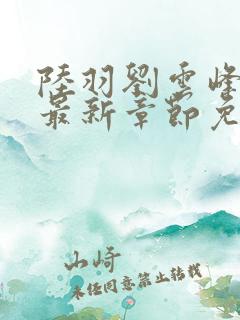 陸羽劉雲峰
最新章節免
山崎
未经同意禁止转载